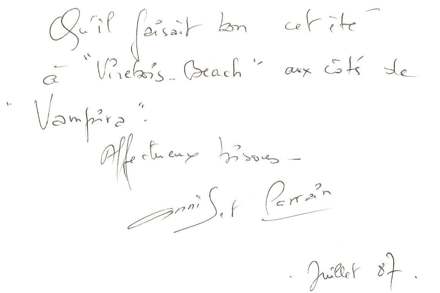 Qu'il faisait bon cet été
à "Virebois-Beach" aux côtés de
"Vampira".
Affectueux bisous -
Perrain
. Juillet 87.